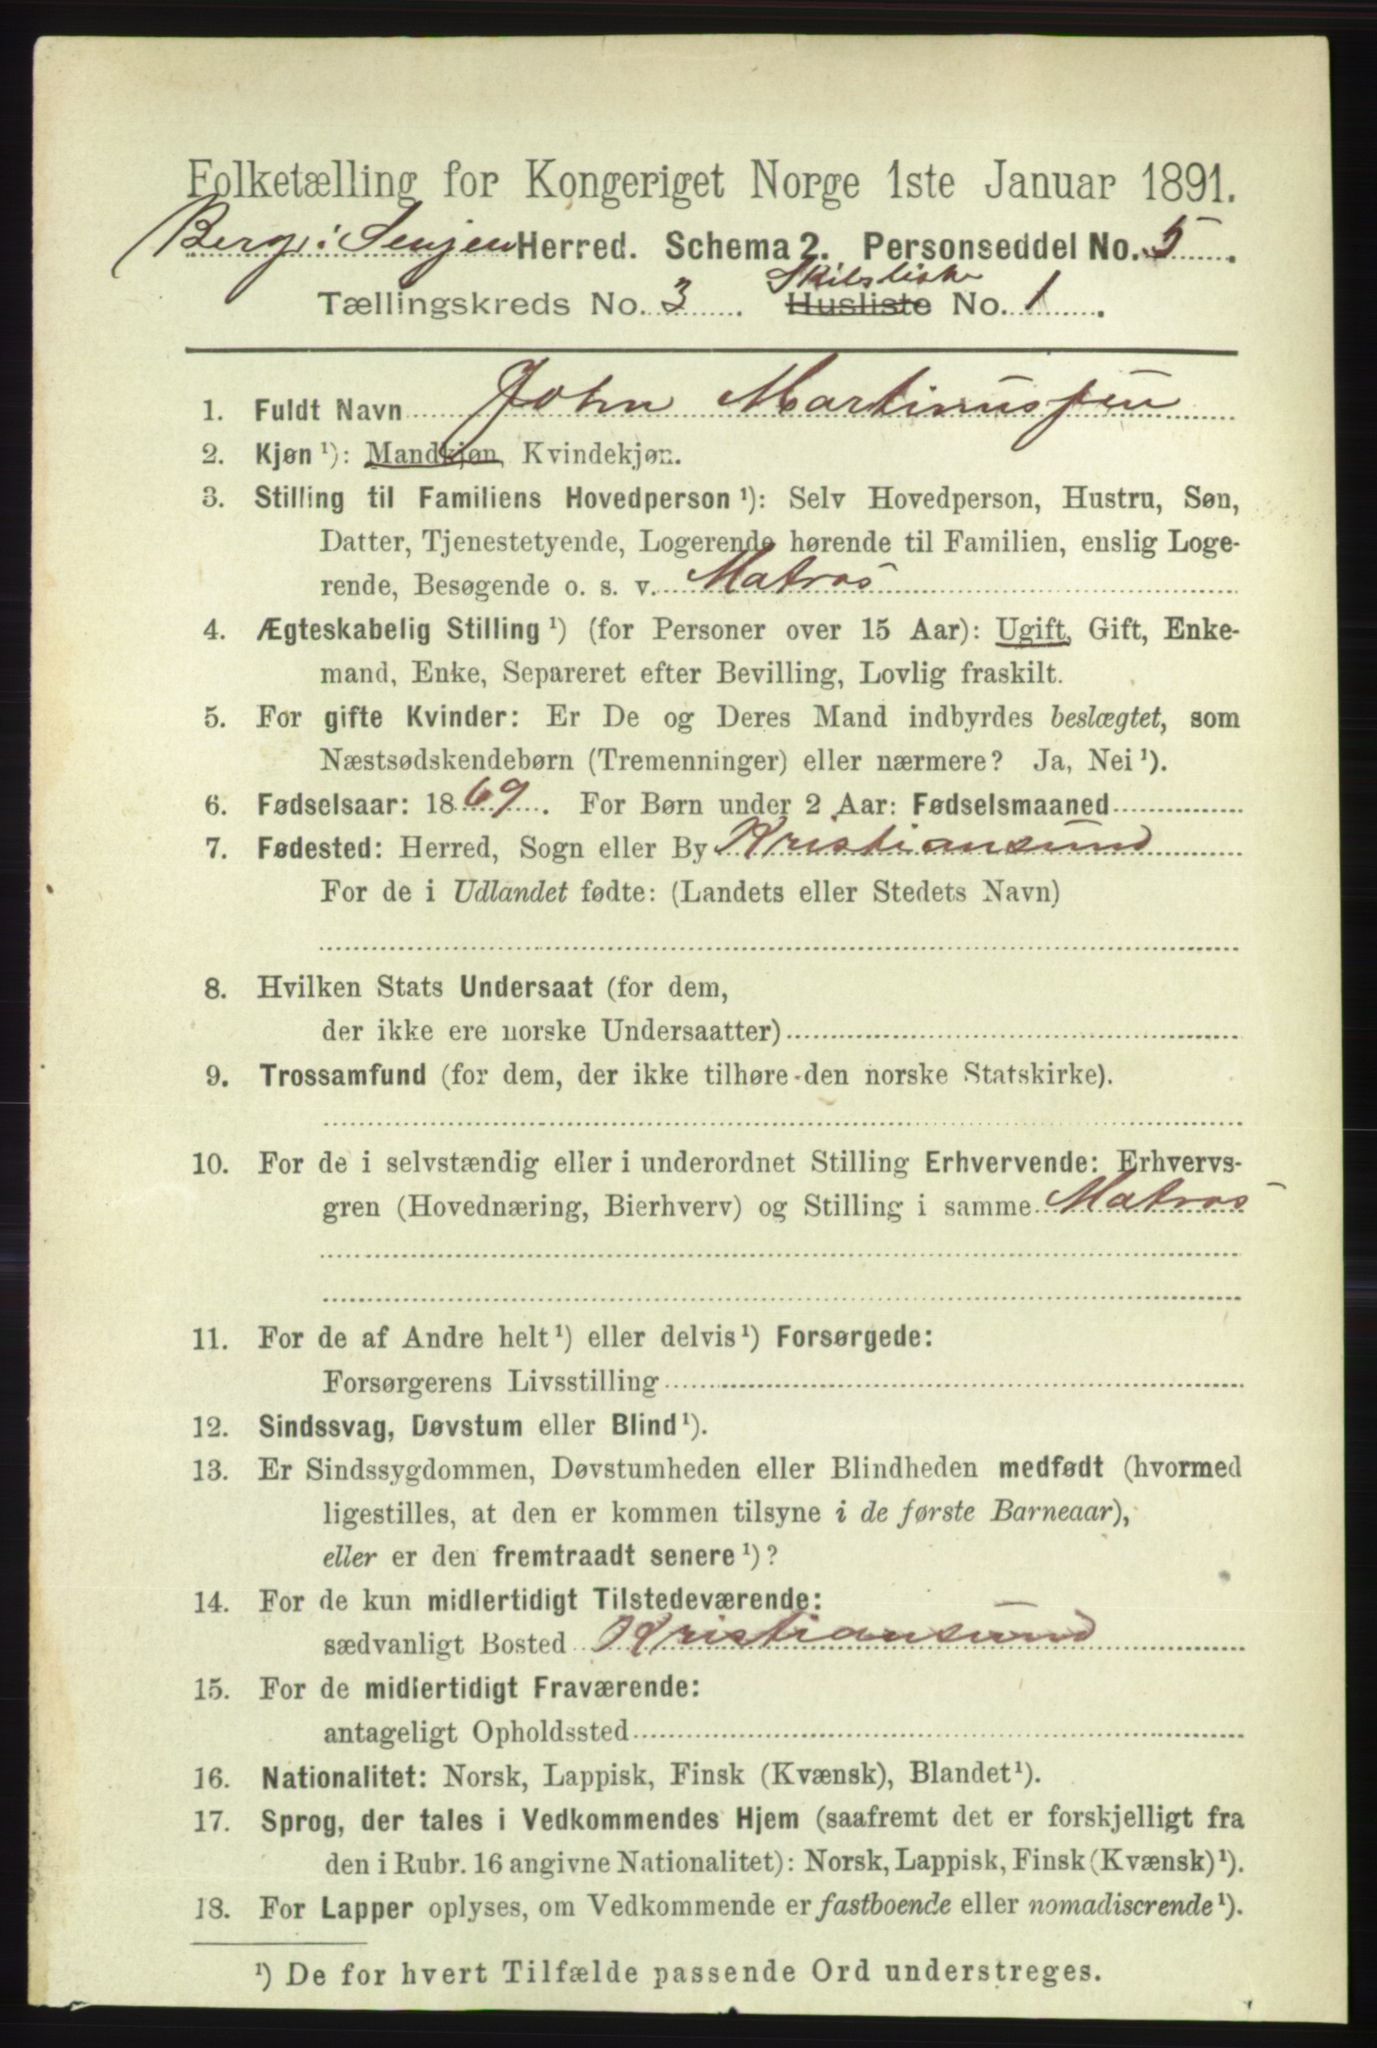 Folketælling for Kongeriget Norge 1ste Januar 1891.
Berg i Senjen Herred. Schema 2. Personseddel No. 5.
Skibsliste
Tællingskreds No. 3. Husliste No. 1.
1. Fuldt Navn John Martinussen
2. Kjøn ¹): Mandkjøn, Kvindekjøn.
3. Stilling til Familiens Hovedperson ¹): Selv Hovedperson, Hustru, Søn,
Datter, Tjenestetyende, Logerende hørende til Familien, enslig Loge-
rende, Besøgende o. s. v. Matros
4. Ægteskabelig Stilling ¹) (for Personer over 15 Aar): Ugift, Gift, Enke-
mand, Enke, Separeret efter Bevilling, Lovlig fraskilt.
5. For gifte Kvinder: Er De og Deres Mand indbyrdes beslægtet, som
Næstsødskendebørn (Tremenninger) eller nærmere? Ja, Nei ¹).
6. Fødselsaar: 1869. For Børn under 2 Aar: Fødselsmaaned
7. Fødested: Herred, Sogn eller By Kristiansund
For de i Udlandet fødte: (Landets eller Stedets Navn)
8. Hvilken Stats Undersaat (for dem,
der ikke ere norske Undersaatter)
9. Trossamfund (for dem, der ikke tilhøre den norske Statskirke).
10. For de i selvstændig eller i underordnet Stilling Erhvervende: Erhvervs-
gren (Hovednæring, Bierhverv) og Stilling i samme Matros
11. For de af Andre helt ¹) eller delvis ¹) Forsørgede:
Forsørgerens Livsstilling
12. Sindssvag, Døvstum eller Blind ¹).
13. Er Sindssygdommen, Døvstumheden eller Blindheden medfødt (hvormed
ligestilles, at den er kommen tilsyne i de første Barneaar),
eller er den fremtraadt senere ¹)?
14. For de kun midlertidigt Tilstedeværende:
sædvanligt Bosted Kristiansund
15. For de midlertidigt Fraværende:
antageligt Opholdssted
16. Nationalitet: Norsk, Lappisk, Finsk (Kvænsk), Blandet ¹).
17. Sprog, der tales i Vedkommendes Hjem (saafremt det er forskjelligt fra
den i Rubr. 16 angivne Nationalitet): Norsk, Lappisk, Finsk (Kvænsk) ¹).
18. For Lapper oplyses, om Vedkommende er fastboende eller nomadiserende ¹).
¹) De for hvert Tilfælde passende Ord understreges.